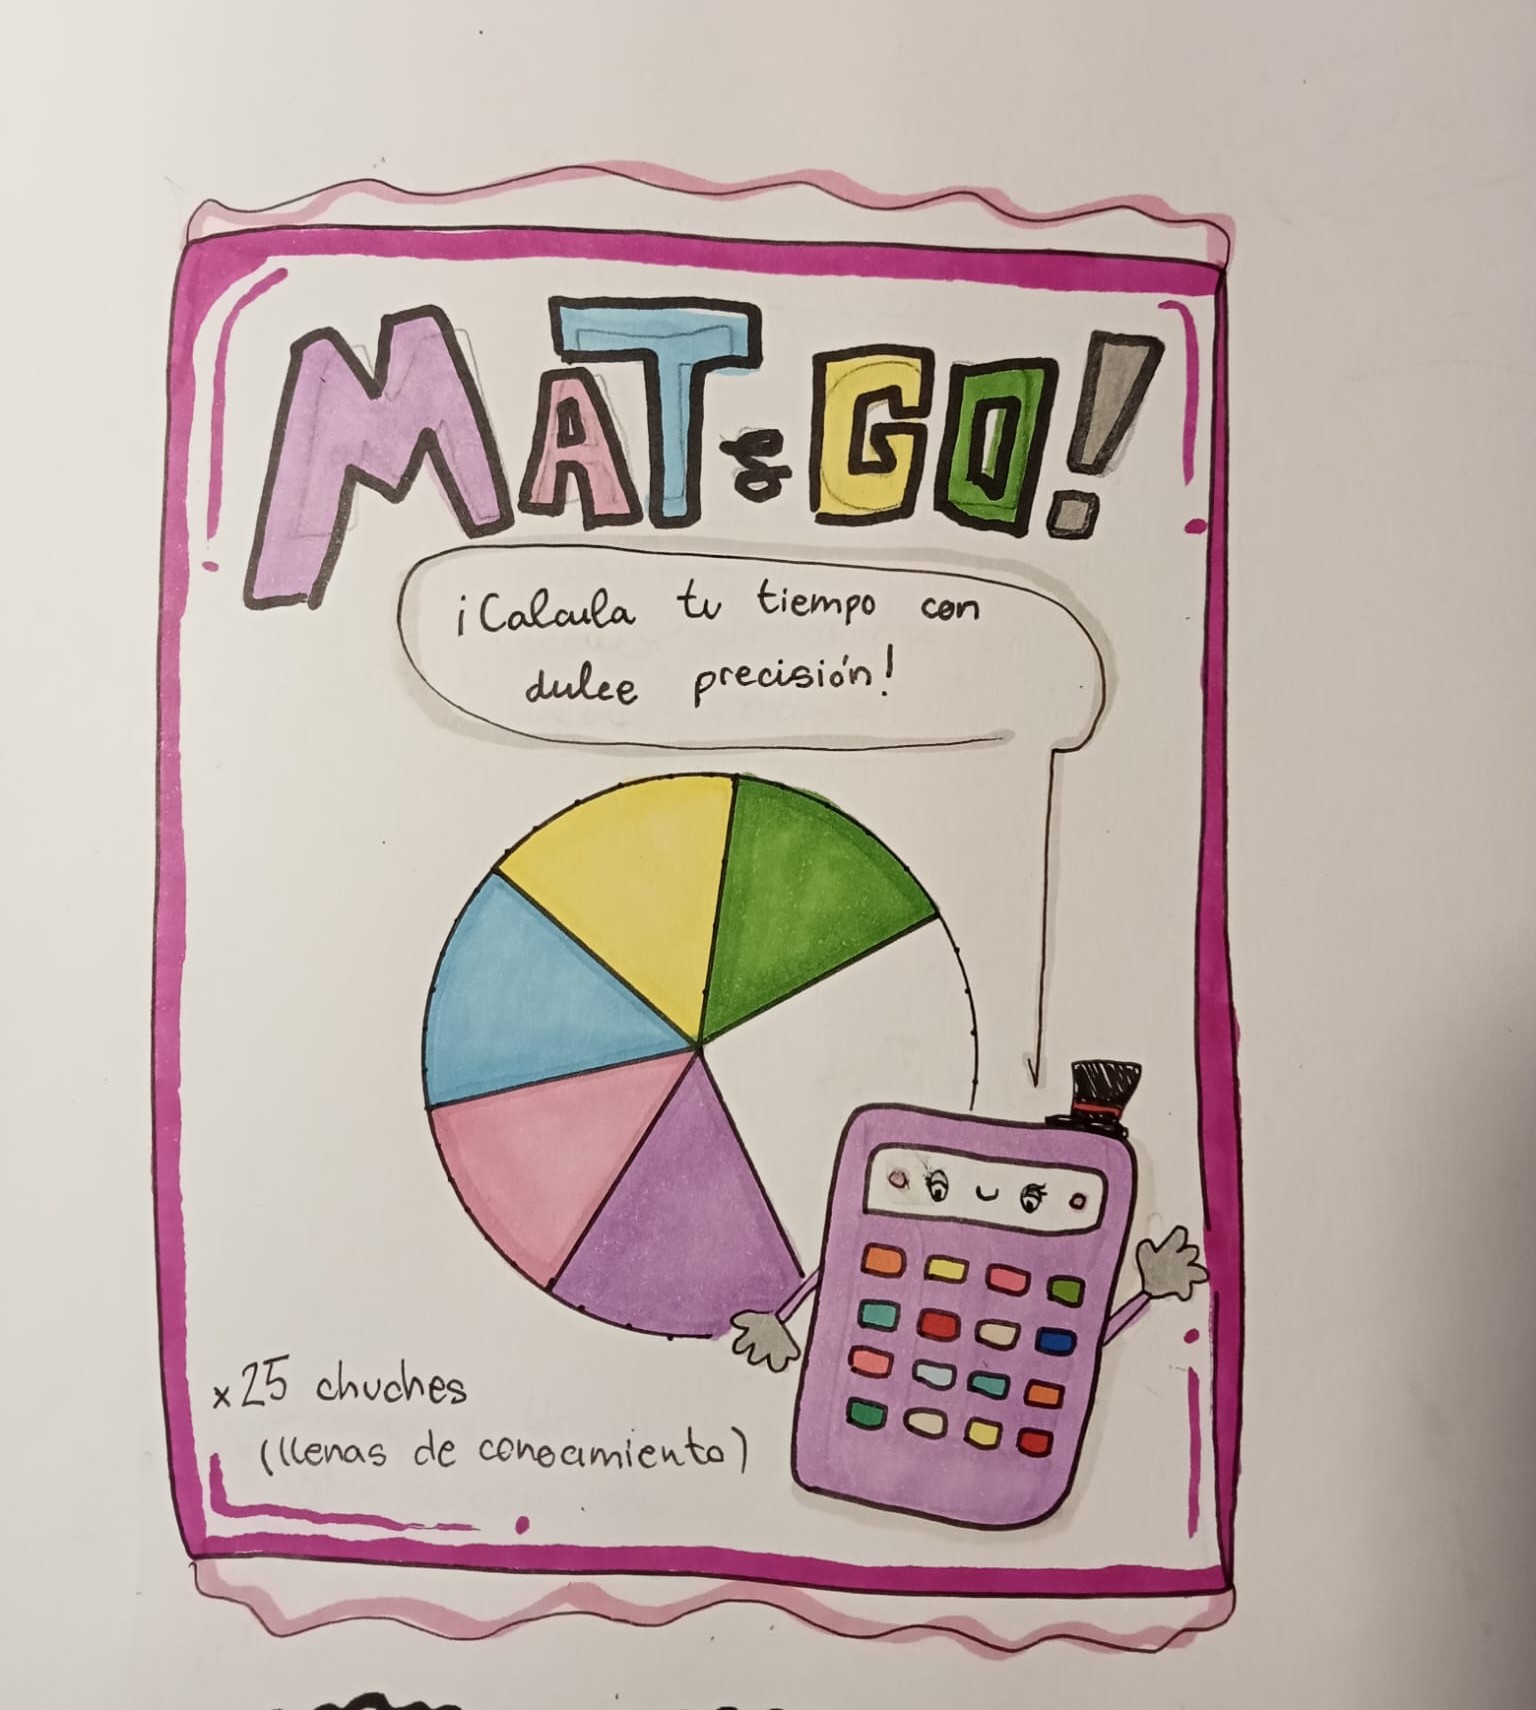 MAT & GO!
¡Calcula tu tiempo con
dulce precisión!
x25 chuches
(llenas de conocimiento)